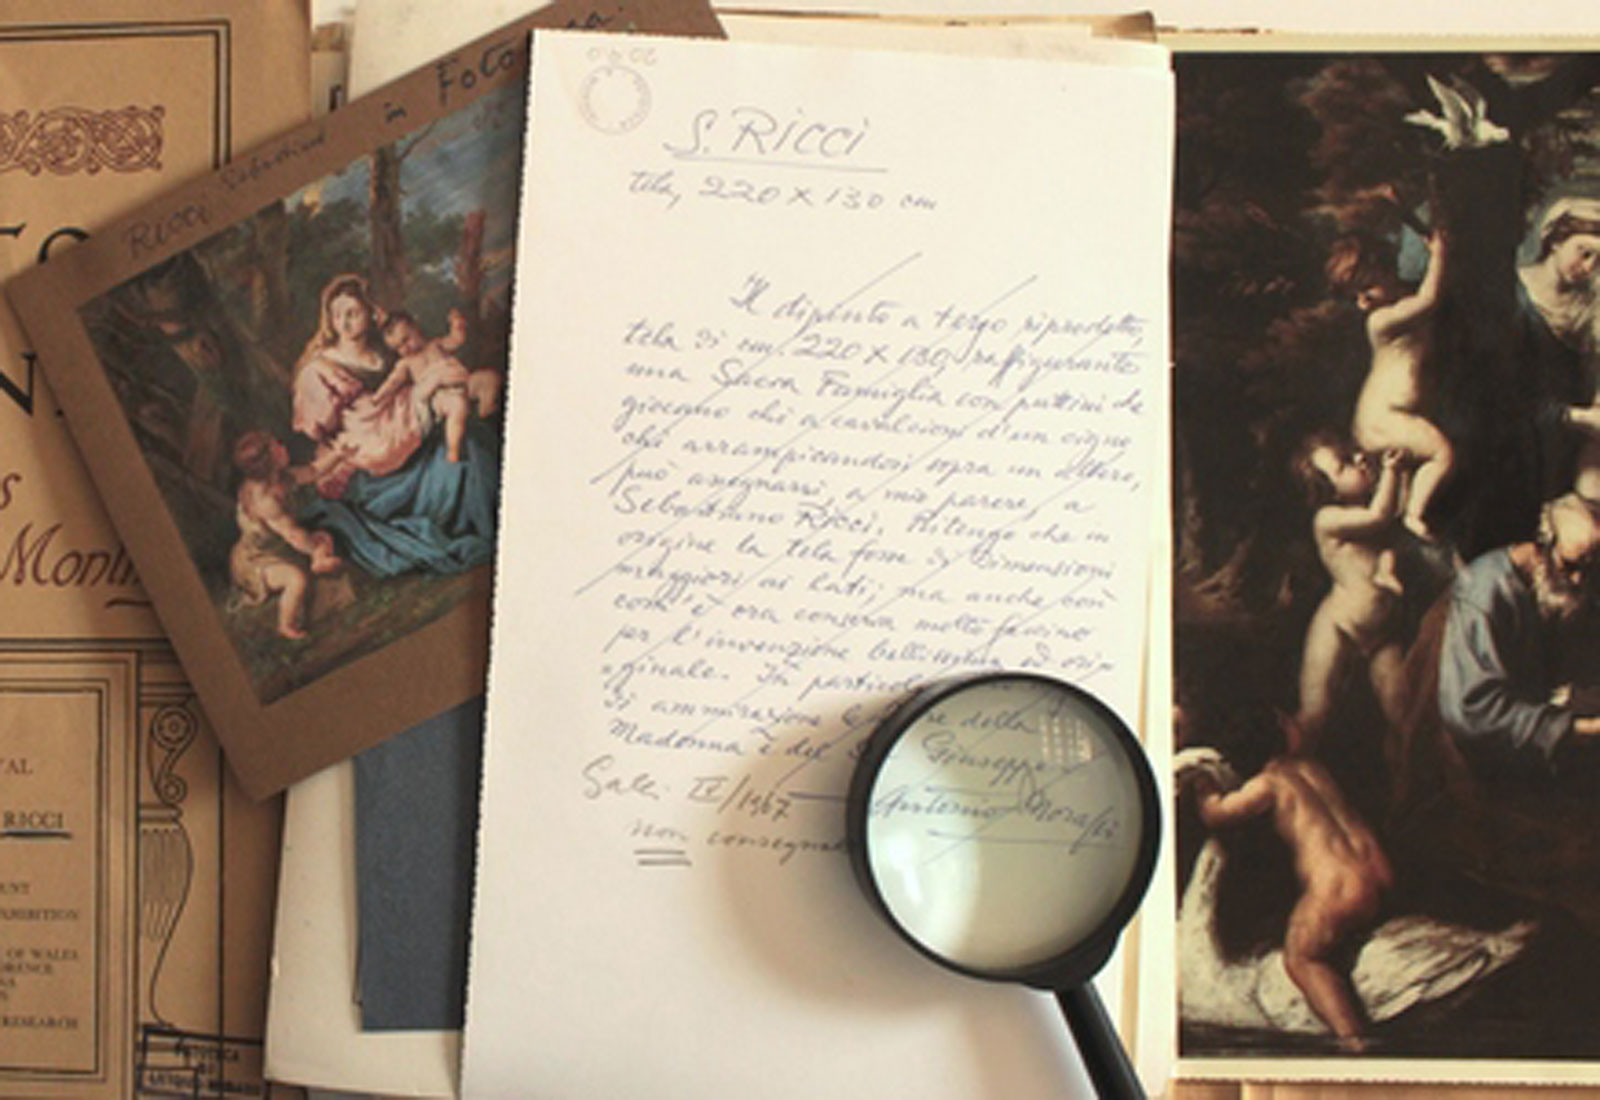 Ricci Sebastiano in Foto
S. Ricci
tela, 220 x 130 cm
Il dipinto a tergo riprodotto,
tela di cm. 220 x 130 raffigurante
una Sacra Famiglia con puttini che
giocano chi a cavalcioni d'un cigno
chi arrampicandosi sopra un albero,
può assegnarsi, a mio parere, a
Sebastiano Ricci. Ritengo che in
origine la tela fosse di dimensioni
maggiori ai lati; ma anche così
com'è ora conserva molto fascino
per l'invenzione bellissima ed ori-
ginale. In particol
di ammirazione della
Madonna e del S. Giuseppe
Antonio Morassi
IV/1967
non consegna
Mont
RICCI
EXHIBITION
OF WALES
RESEARCH
FOTOTECA
DI
ANTONIO MORASSI